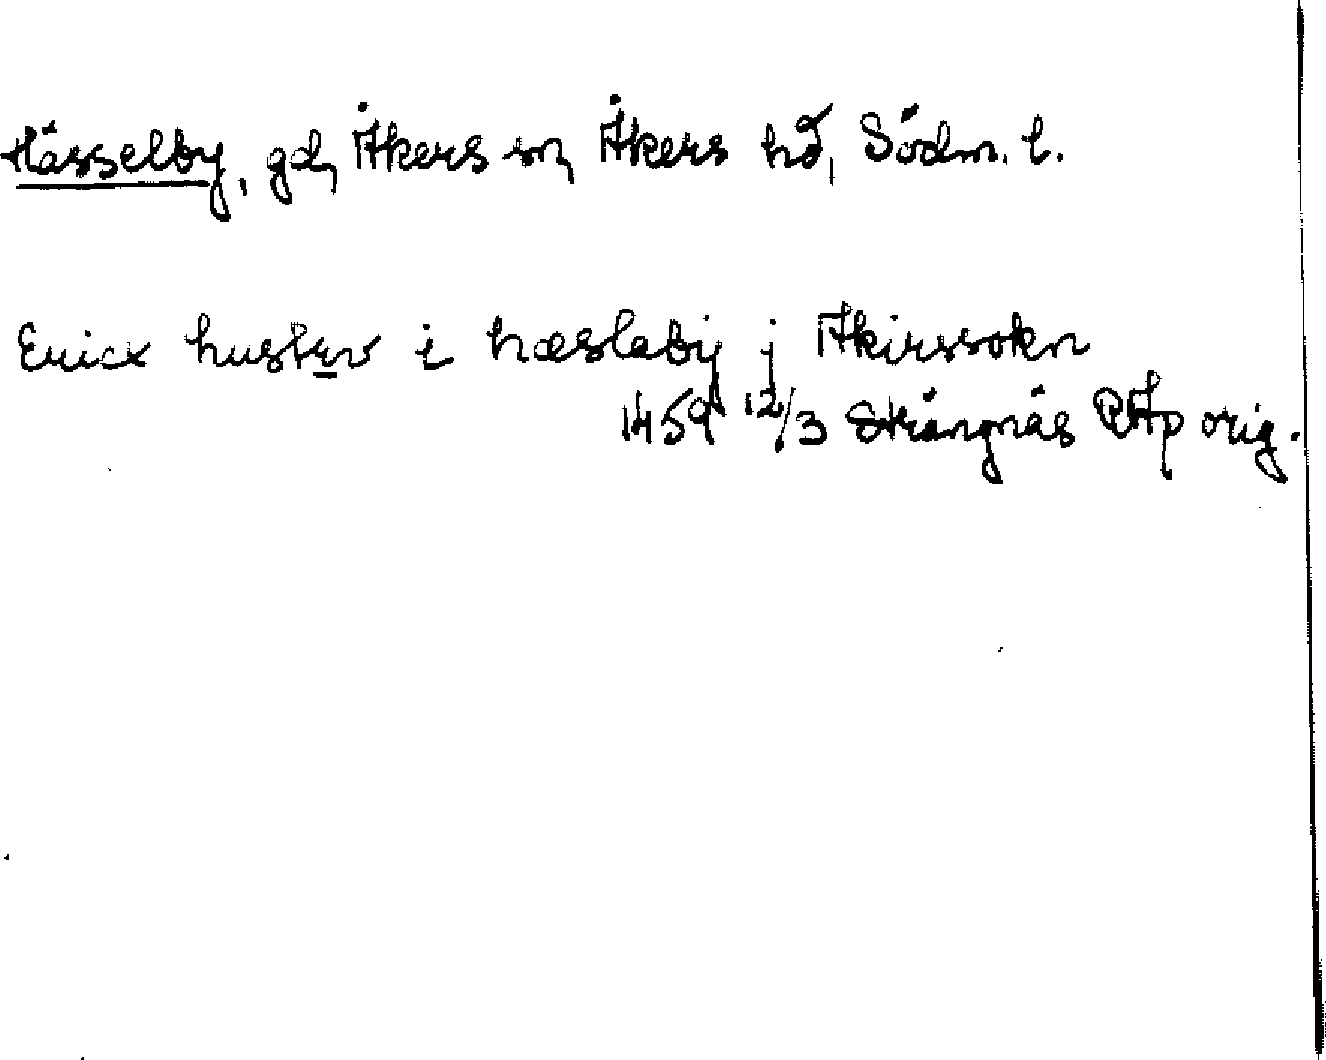 Hässelby, gd, Åkers sn, Åkers hd, Södm. l.
Ericx hustrv i hæslaby j Akirssokn
1459 12/3 Strängnäs RAp orig.